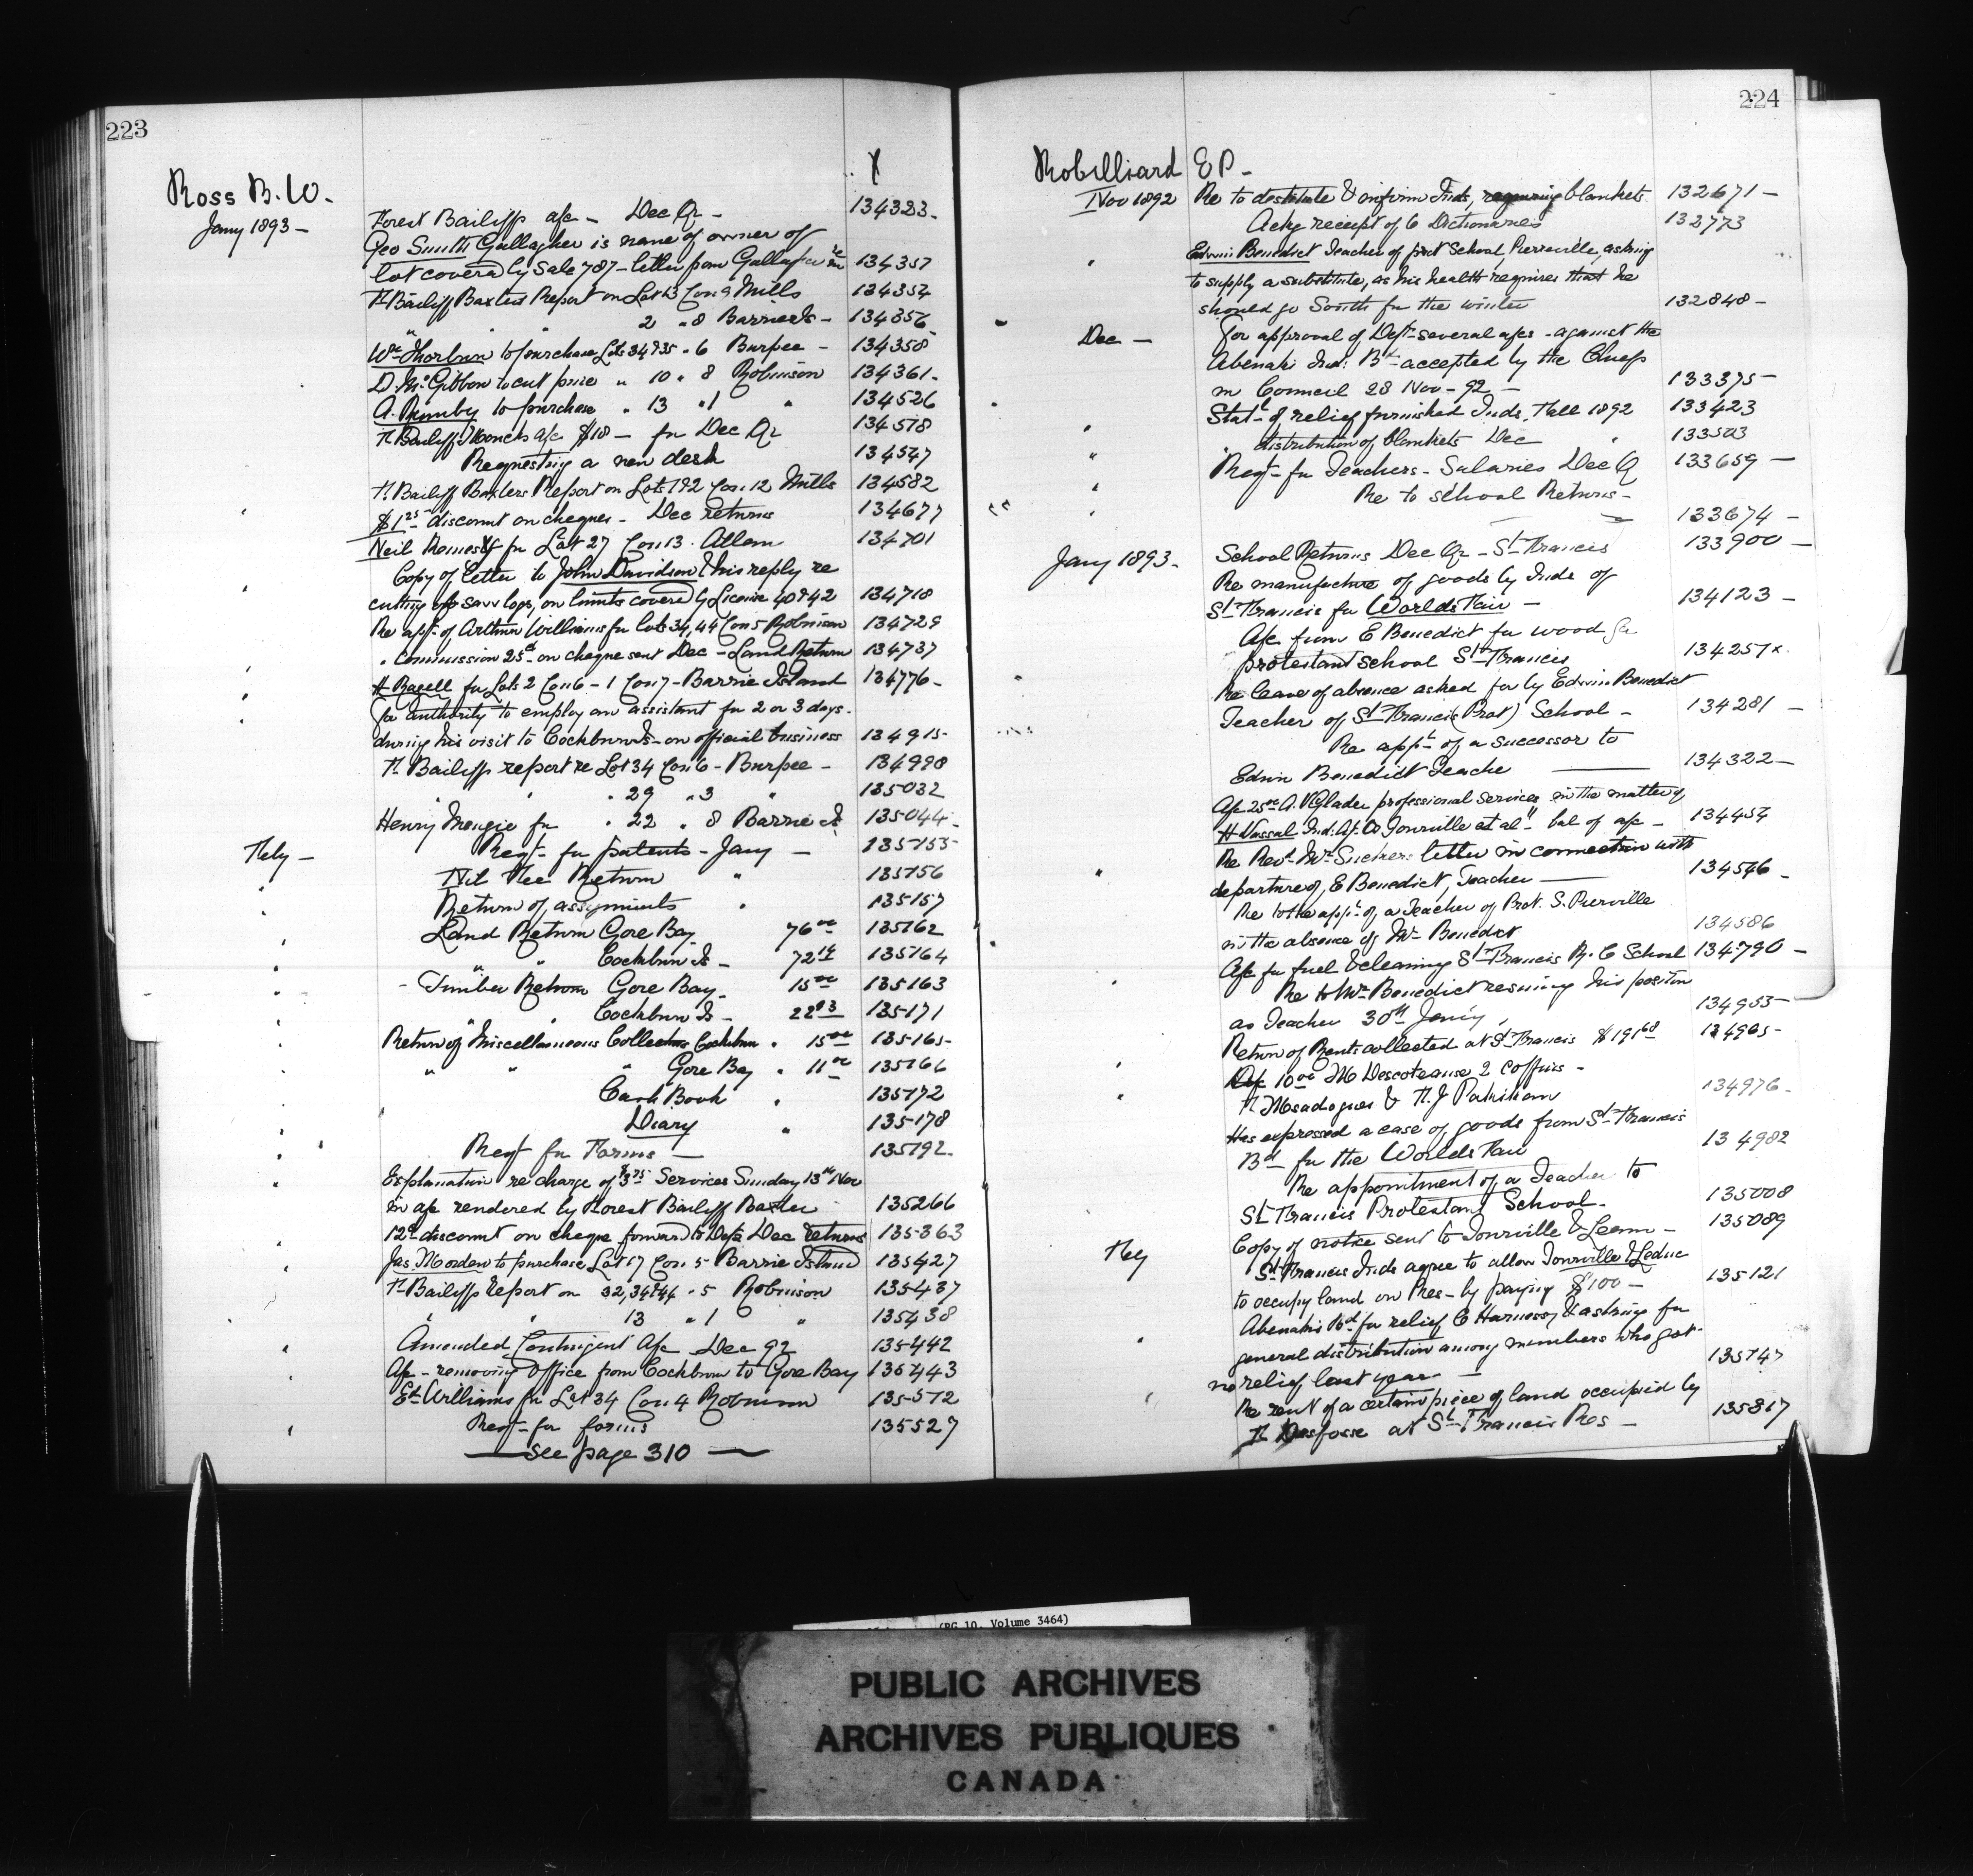 223
Ross B. W.
Jany 1893 —
Forest Bailiffs a/c — Dec Qr — 134323 -
Geo Smith Gallagher is name of owner of
lot covered by Sale 787 — letter from Gallagher 134357
F. Bailiff Baxters Report on Lot 13 Con 9 Mills 134354
" " " 2 " 8 Barrie Is — 134356
Wm Thorburn to purchase Lots 34 & 35 " 6 Burpee — 134358
D. McGibbon to cut pine " 10 " 8 Robinson 134361 -
A. to purchase " 13 " 1 " 134526
F. Bailiff a/c $18 — for Dec Qr 134578
Requesting a new desk 134547
F. Bailiff Baxters Report on Lots 1 & 2 Con. 12 Mills 134582
$1 25 discount on cheques — Dec returns 134677
Neil for Lot 27 Con 13. Allan 134701
Copy of letter to John Davidson & his reply re
cutting of saw logs, on limits covered by License 40 & 42 134718
Re app. of Arthur Williams for lots 34, 44 Con 5 Robinson 134729
" Commission 25 cts on cheque sent Dec — Land Return 134737
H. Bagell for Lots 2 Con 6 — 1 Con 7 — Barrie Island 134776 -
For authority to employ an assistant for 2 or 3 days
during his visit to Cockburn Is — on official business 134915
F. Bailiffs report re Lot 34 Con 6 — Burpee — 134998
" " " 29 " 3 " 135032
Henry for " 22 " 8 Barrie Is 135044 -
Feby — Reqt — for patents — Jany — 135155
" Nil Fee Return " 135156
" Return of assignments " 135157
" Land Return Gore Bay 76 00 135162
" " " Cockburn Is — 72 14 135164
" Timber Return Gore Bay 15 00 135163
" " Cockburn Is — 22 83 135171
" Return of Miscellaneous Collections Cockburn " 15 00 135165 -
" " " " Gore Bay " 11 00 135166
" Cash Book " 135172
" Diary " 135178
" Reqt for Forms — 135192 -
" Explanation re charge of $3 75 Services Sunday 13th Nov
in a/c rendered by Forest Bailiff Baxter 135266
12 cts discount on cheque forward to Dept Dec returns 135363
" Jas. Morden to purchase Lot 17 Con. 5 Barrie Island 135427
" F. Bailiffs Report on 32, 34 & 44 " 5 Robinson 135437
" " " 13 " 1 " 135438
" Amended Contingent a/c Dec 92 135442
" A/c — removing Office from Cockburn to Gore Bay 135443
" Ed. Williams for Lot 34 Con. 4 Robinson 135512
" Reqt — for forms 135527
— See page 310 —
224
Robilliard E P —
Nov 1892 Re to destitute & infirm Inds, requiring blankets 132671 —
Ackg receipt of 6 Dictionaries 132773
" Edwin Benedict Teacher of prot School, Pierreville, asking
to supply a substitute, as his health requires that he
should go South for the winter 132848 —
Dec — For approval of Dept several a/cs — against the
Abenaki Ind: Bd — accepted by the Chiefs
in Council 28 Nov — 92 — 133375 —
" Statt of relief furnished Inds. Fall 1892 133423
" " distribution of blankets Dec " 133503
" Reqt — for Teachers — Salaries Dec Q 133659 —
" Re to school Returns — 133674 —
Jany 1893 — School Returns Dec Qr — St Francis 133900 —
Re manufacture of goods by Inds of
St Francis for Worlds Fair — 134123 —
A/c from E Benedict for wood for
protestant school St Francis 134257 x
Re leave of absence asked for by Edwin Benedict
Teacher of St Francis (Prot) School — 134281 —
Re appt of a successor to
Edwin Benedict Teacher — 134322 —
A/c 25 00 A. V. Glades professional services in the matter of
H Vassal Ind: Agt vs Tourville et al" bal of a/c — 134454
" Re Revd Mr letter in connection with
departure of E Benedict, Teacher — 134546 —
Re to the appt of a Teacher of Prot. S. Pierville
in the absence of Mr Benedict 134586
A/c for fuel & cleaning St Francis R. C School 134790 —
Re to Mr Benedict resuming his position
as Teacher 30th Jany, 134953
Return of Rents collected at St Francis $191 68 134965 -
A/c 10 00 M Descoteause 2 coffins —
N. Msadoques & N. J 134976 -
Has expressed a case of goods from St Francis
Bd for the Worlds Fair 134982
Re appointment of a Teacher to
St Francis Protestant School — 135008
Copy of notice sent to Tourville & Leduc — 135089
Feby St Francis Inds agree to allow Tourville & Leduc
to occupy land on Res — by paying $100 — 135121
" Abenakis Bd for relief C Harnessy & asking for
general distribution among members who got
no relief last year — 135747
" Re rent of a certain piece of land occupied by
at St Francis Res — 135817
(RG 10, Volume 3464)
PUBLIC ARCHIVES
ARCHIVES PUBLIQUES
CANADA